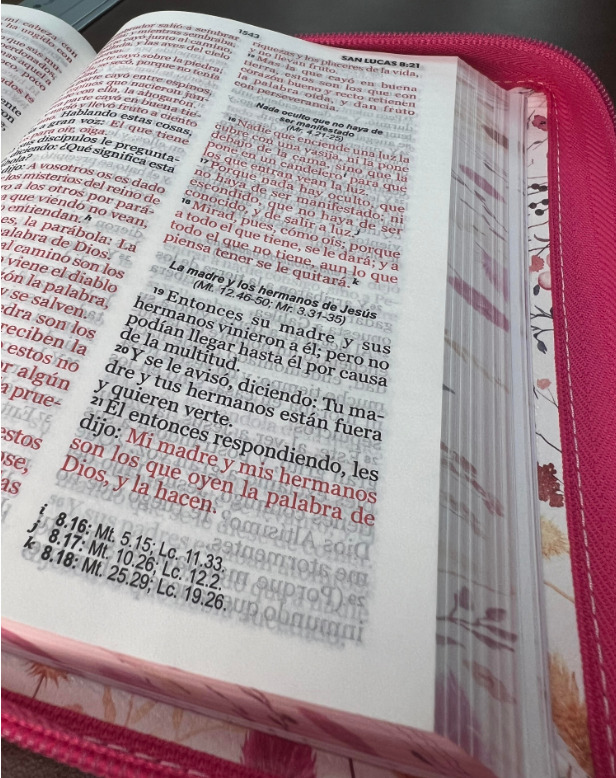 1543
SAN LUCAS 8:21
mi cabeza con
ha ungido con
salió a sembrar
y mientras sembraba,
cayó junto al camino,
y las aves del cielo
parte cayó sobre la piedra;
porque no tenía
parte cayó entre espinos,
que nacieron jun-
con ella, la ahogaron.
parte cayó en buena tie-
y llevó fruto a ciento
Hablando estas cosas,
a gran voz: El que tiene
para oír, oiga.
discípulos le pregunta-
diciendo: ¿Qué significa esta
dijo: A vosotros os es dado
los misterios del reino de
a los otros por pará-
que viendo no vean,
entiendan. h
es, la parábola: La
palabra de Dios.
camino son los
viene el diablo
la palabra,
y se salven.
son los
reciben la
estos no
algún
estos
riquezas y los placeres de la vida,
y no llevan fruto.
15 Mas la que cayó en buena
tierra, estos son los que con
corazón bueno y recto retienen
la palabra oída, y dan fruto
con perseverancia.
Nada oculto que no haya de
ser manifestado
(Mr. 4.21-25)
16 Nadie que enciende una luz la
cubre con una vasija, ni la pone
debajo de la cama, sino que la
pone en un candelero para que
los que entran vean la luz. i
17 Porque nada hay oculto, que
no haya de ser manifestado; ni
escondido, que no haya de ser
conocido, y de salir a luz. j
18 Mirad, pues, cómo oís; porque
a todo el que tiene, se le dará; y a
todo el que no tiene, aun lo que
piensa tener se le quitará. k
La madre y los hermanos de Jesús
(Mt. 12.46-50; Mr. 3.31-35)
19 Entonces su madre y sus
hermanos vinieron a él; pero no
podían llegar hasta él por causa
de la multitud.
20 Y se le avisó, diciendo: Tu ma-
dre y tus hermanos están fuera
y quieren verte.
21 Él entonces respondiendo, les
dijo: Mi madre y mis hermanos
son los que oyen la palabra de
Dios, y la hacen.
i 8.16: Mt. 5.15; Lc. 11.33.
j 8.17: Mt. 10.26; Lc. 12.2.
k 8.18: Mt. 25.29; Lc. 19.26.